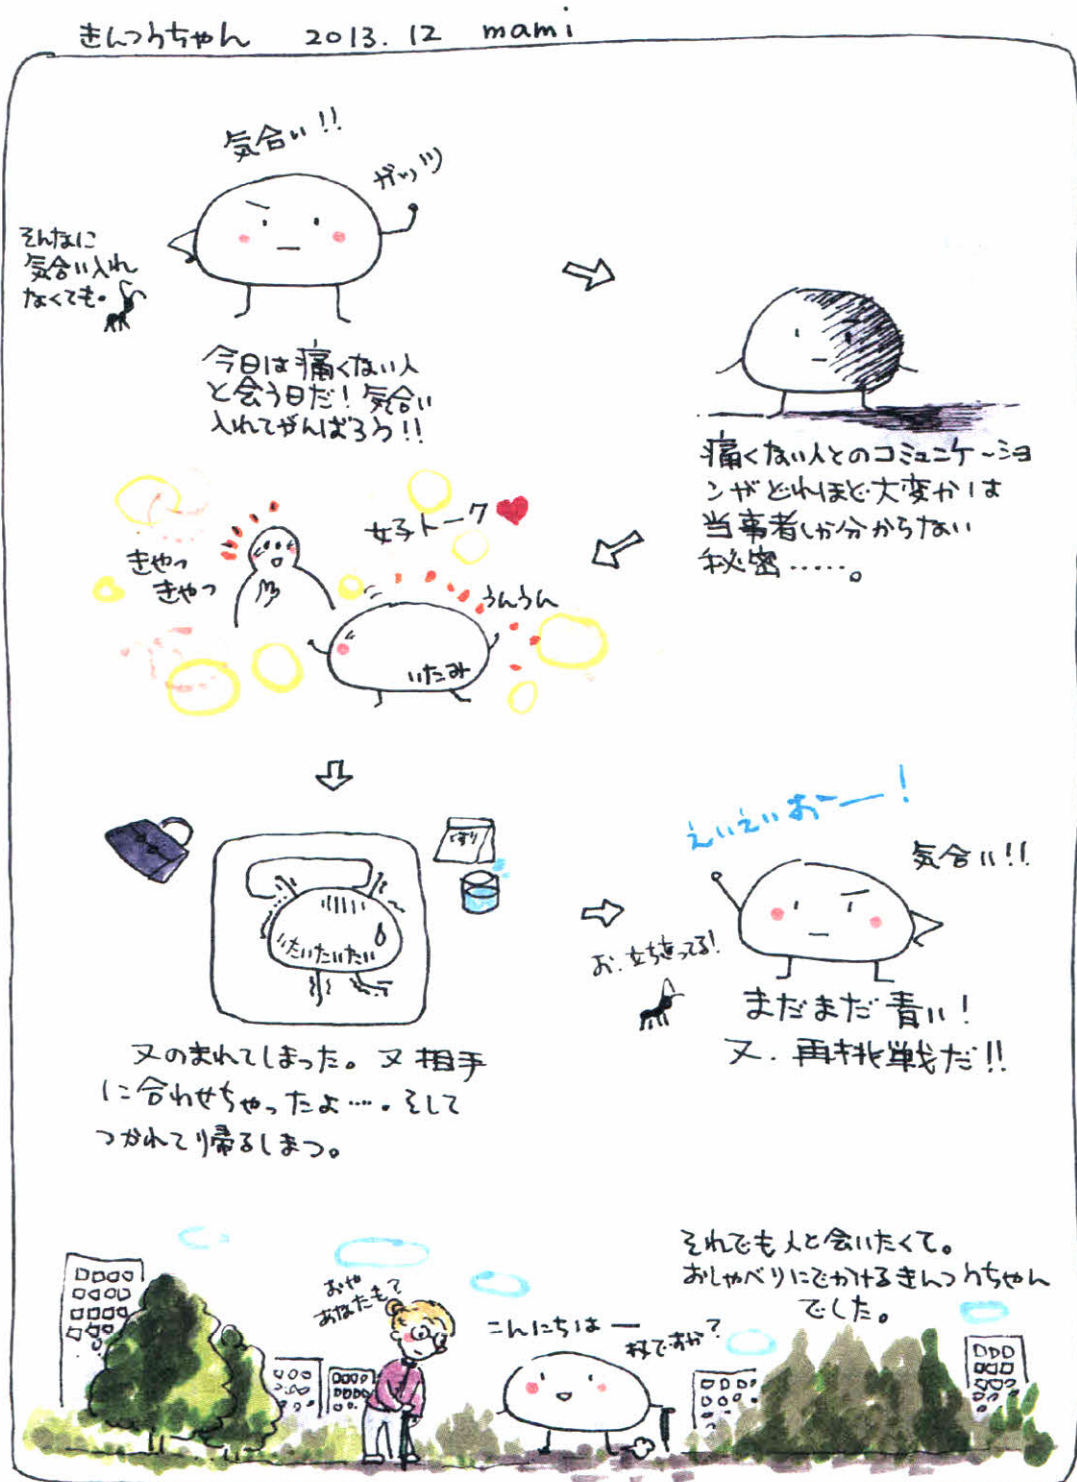 きんつうちゃん 2013.12 mami
気合い!!
ガッツ
そんなに
気合い入れ
なくても。
今日は痛くない人
と会う日だ!気合い
入れてがんばろう!!
痛くない人とのコミュニケーショ
ンがどれほど大変かは
当事者しか分からない
秘密……。
女子トーク
きゃっ
きゃっ
うんうん
いたみ
くすり
いたいたいたい
又のまれてしまった。又相手
に合わせちゃったよ…。そして
つかれて帰るしまつ。
えいえいおーー!
気合い!!
お、立ち直ってる!
まだまだ青い!
又、再挑戦だ!!
それでも人と会いたくて。
おしゃべりにでかけるきんつうちゃん
でした。
おや
あなたも?
こんにちはー
杖ですか?